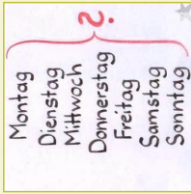 ?
Montag
Dienstag
Mittwoch
Donnerstag
Freitag
Samstag
Sonntag